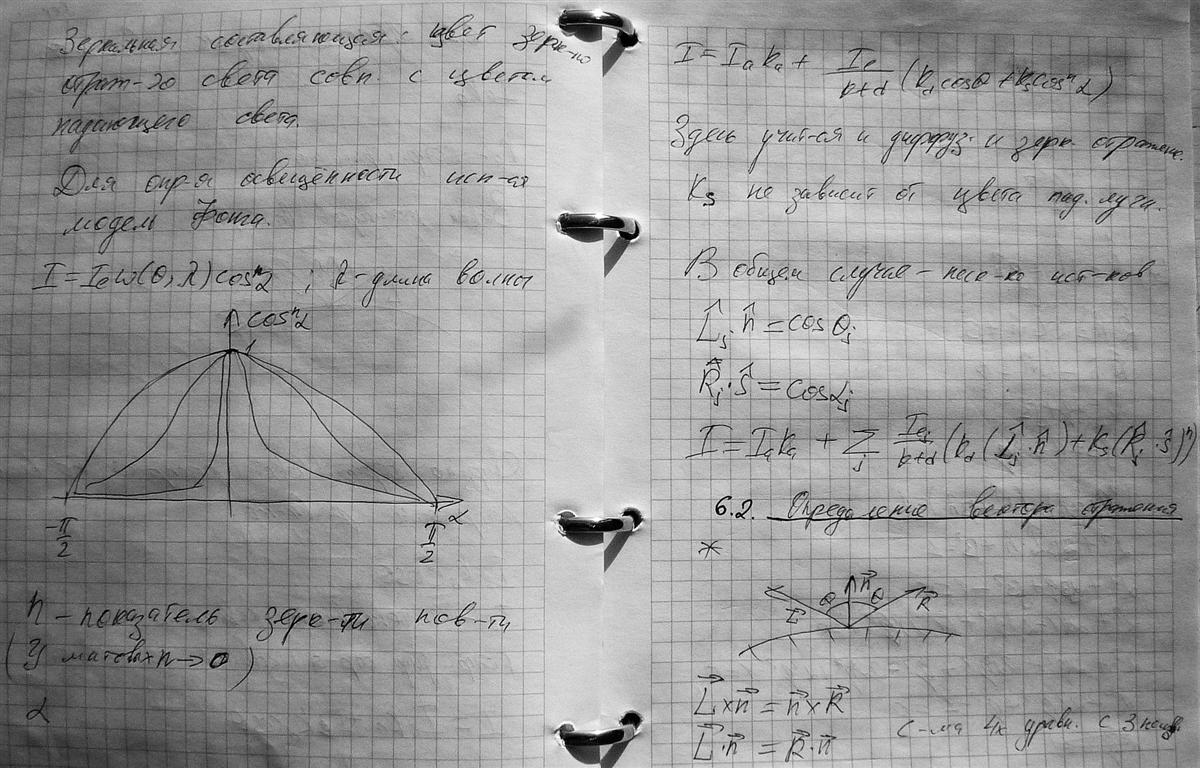 Зеркальная составляющая: цвет зерк-но
отраж-го света совп. с цветом
падающего света.
Для опр-я освещённости исп-ся
модель Фонга.
I = I₀ω(θ, λ)cosⁿα ; λ - длина волны
cosⁿα
1
-π/2
π/2
α
n - показатель зерк-ти пов-ти
(У матовых n→0)
α
I = Iₐkₐ + Iₑ/(k+d) (k_d cosθ + k_s cosⁿα)
Здесь учит-ся и диффуз. и зерк. отражен.
Ks не зависит от цвета пад. луча.
В общем случае - неск-ко ист-ков
L⃗ⱼ · n⃗ = cos θⱼ
R⃗ⱼ · s⃗ = cos αⱼ
I = Iₐkₐ + Σⱼ Iₑⱼ/(k+d) (k_d (L⃗ⱼ · n⃗) + k_s (R⃗ⱼ · s⃗)ⁿ)
6.2. Определение вектора отражения
*
n⃗
θ θ
L⃗ R⃗
L⃗ × n⃗ = n⃗ × R⃗
L⃗ · n⃗ = R⃗ · n⃗
с-ма 4х уравн. с 3 неизв.